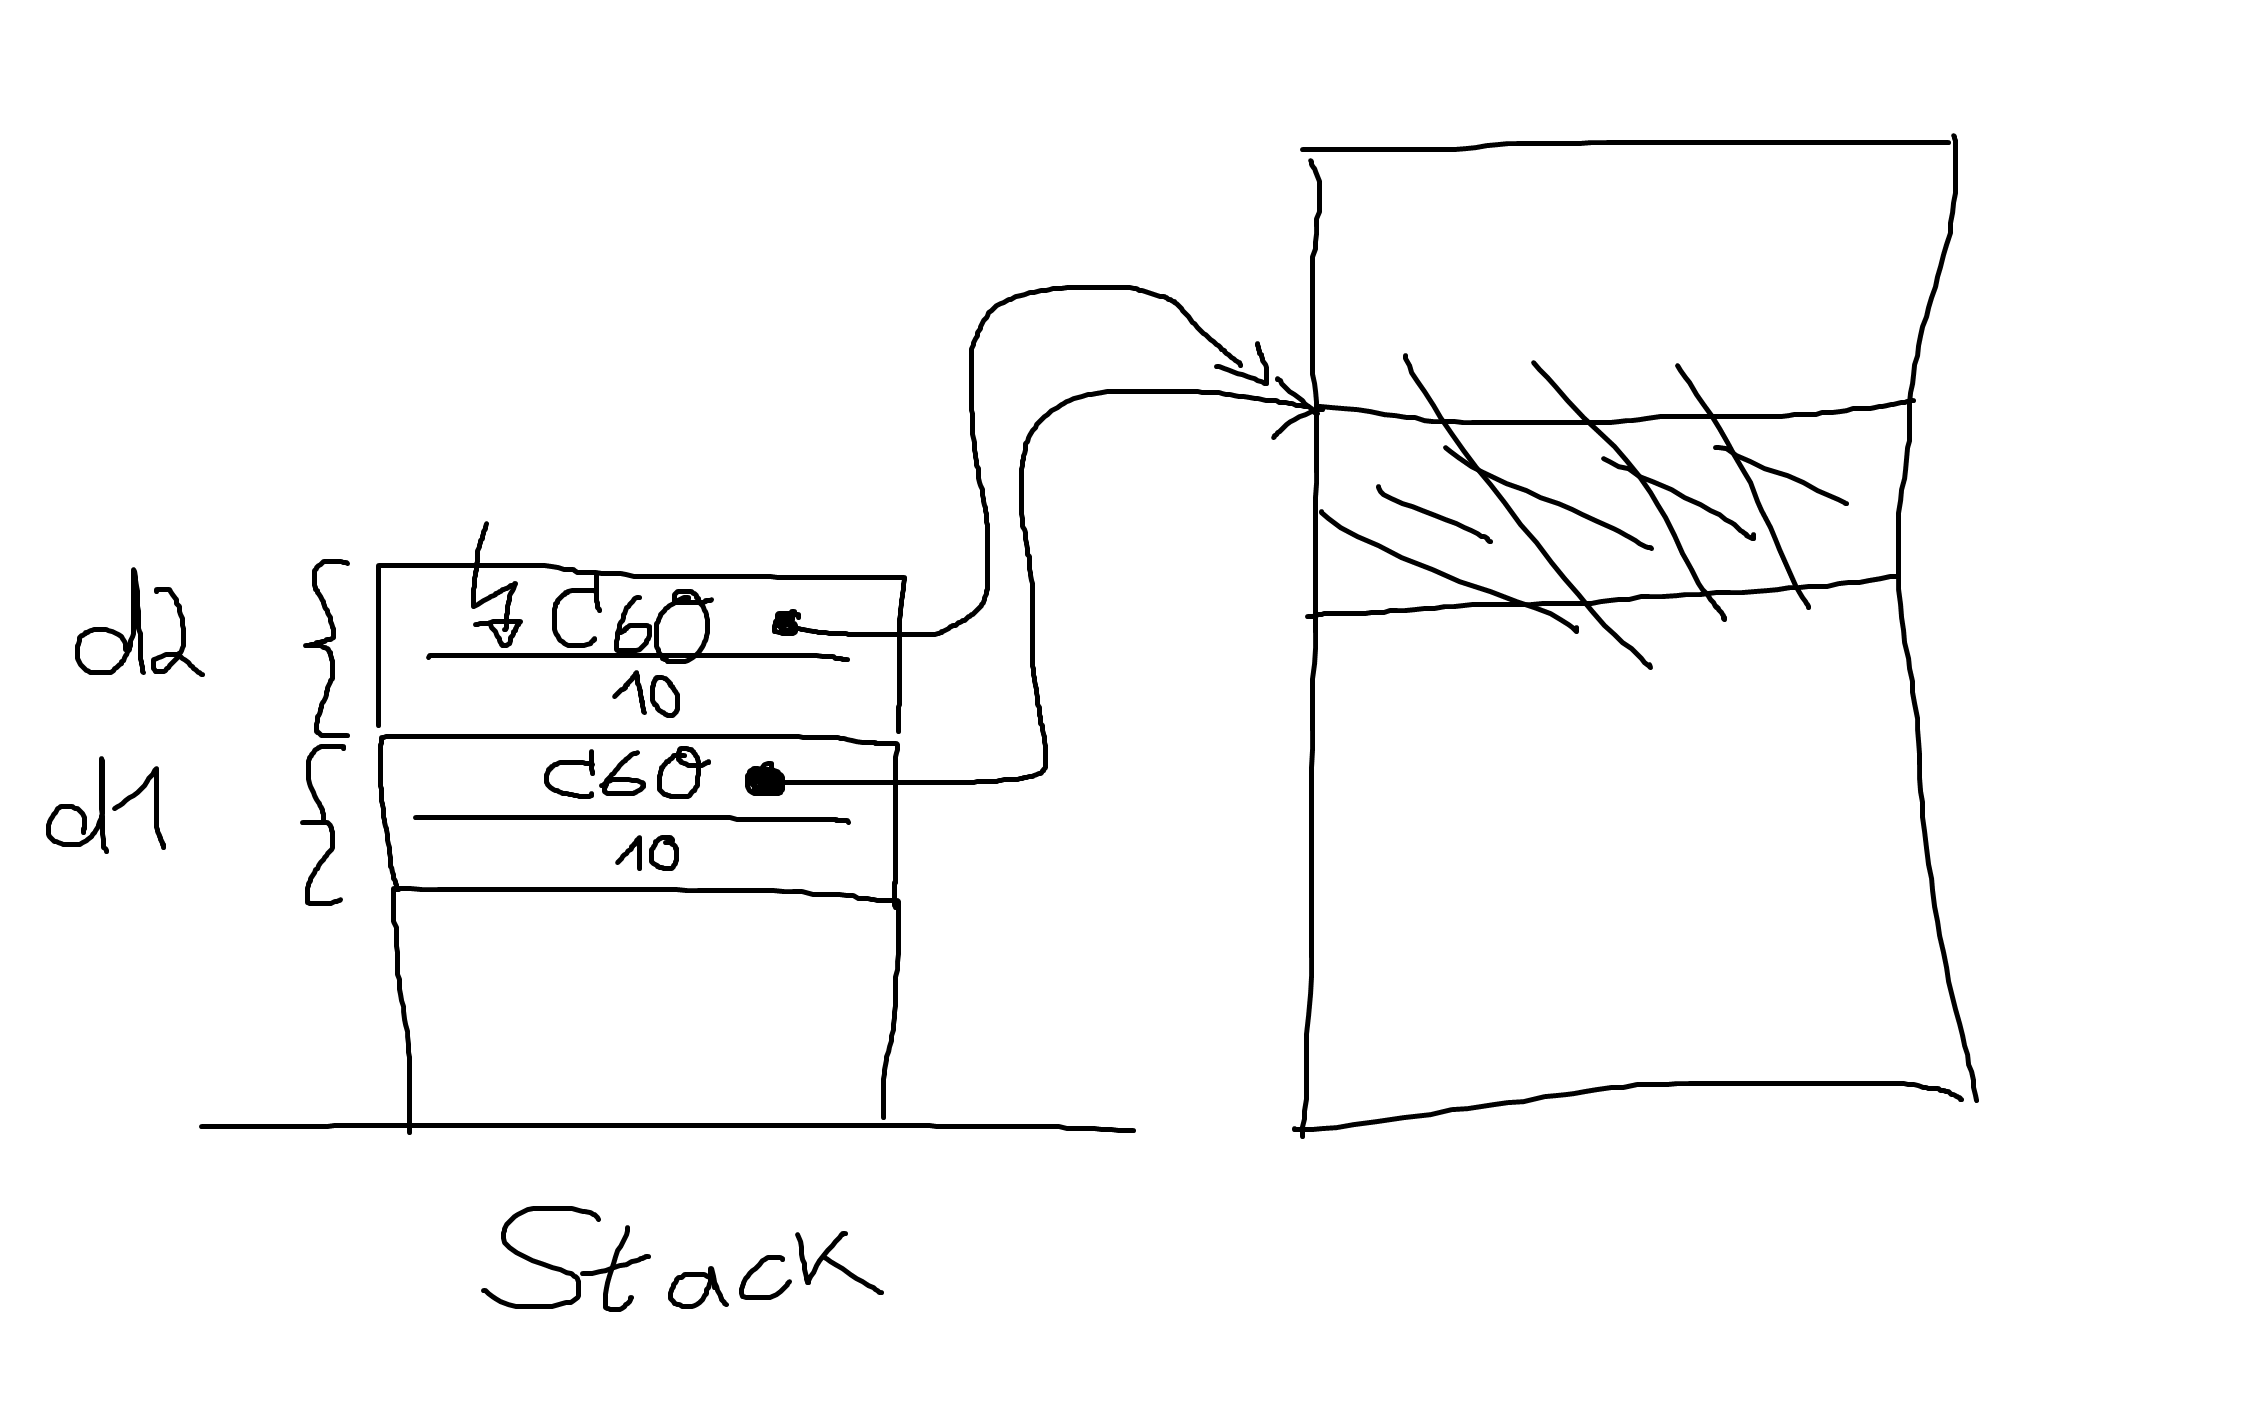 d2
C60
10
d1
C60
10
Stack